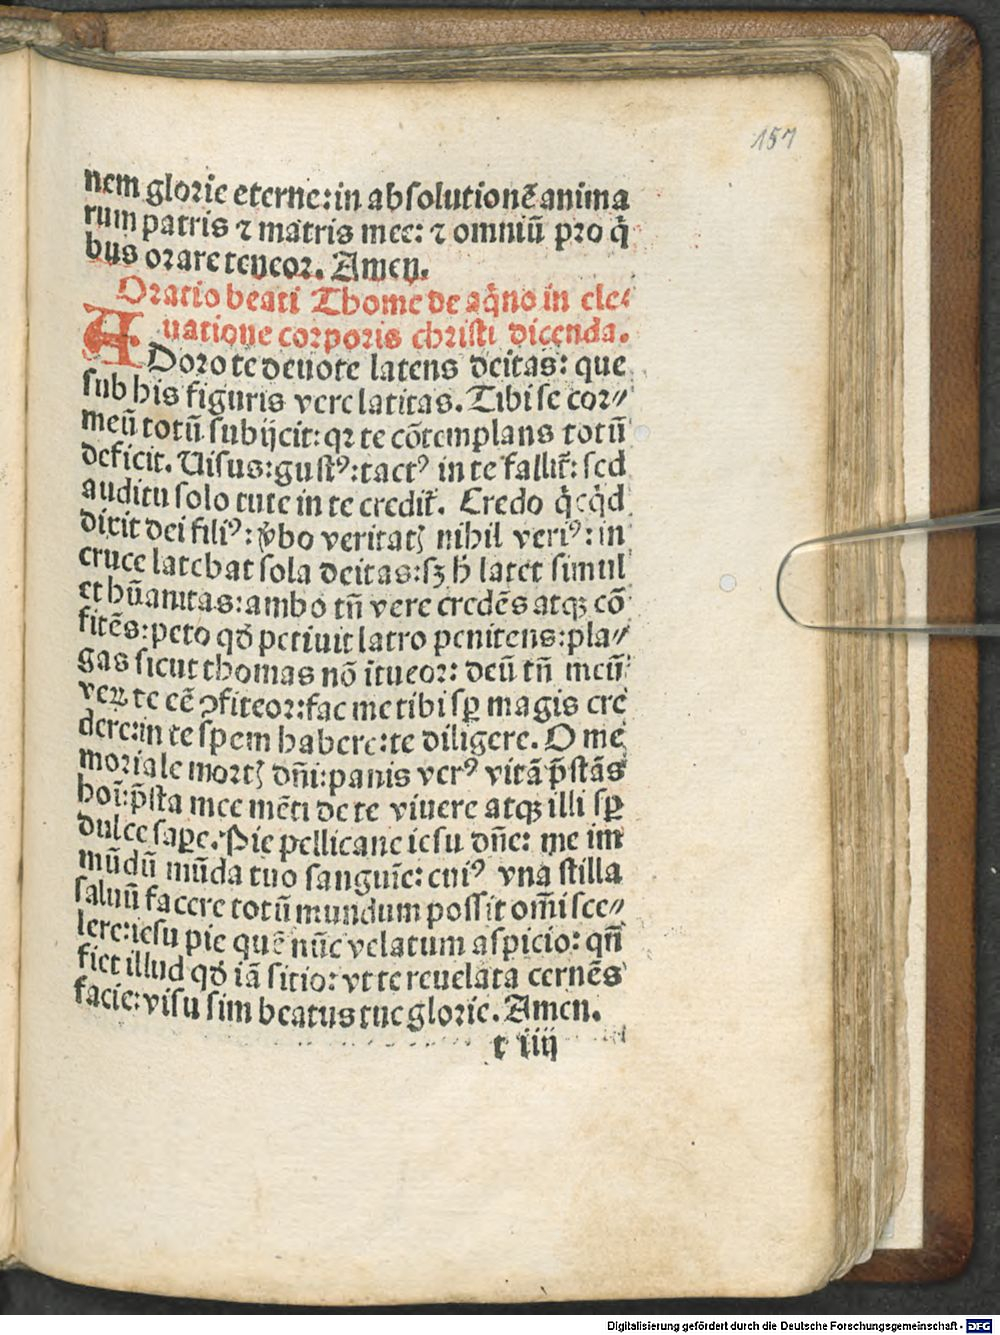 157
nem glorie eterne: in absolutionē anima
rum patris ⁊ matris mee: ⁊ omniū pro q̇
bus orare teneor. Amen.
Oratio beati Thome de aq̇no in ele⸗
uatione corporis christi dicenda.
ADoro te deuote latens deitas: que
sub his figuris vere latitas. Tibi se cor⸗
meū totū subijcit: qꝛ te cōtemplans totū
deficit. Uisus: gustꝰ: tactꝰ in te fallit᷑: sed
auditu solo tute in te credit᷑. Credo q̇cq̇d
dixit dei filiꝰ: v̓bo veritatꝭ nihil veriꝰ: in
cruce latebat sola deitas: sꝫ h̓ latet simul
et hūanitas: ambo tn̄ vere credēs atqꝫ cō
fitēs: peto qđ petiuit latro penitens: pla⸗
gas sicut thomas nō itueor: deū tn̄ meū
veꝝ te eē ꝯfiteor: fac me tibi sꝑ magis cre
dere: in te spem habere: te diligere. O me
moriale mortꝭ dn̄i: panis verꝰ vitā p̄stās
hoī: p̄sta mee mēti de te viuere atqꝫ illi sꝑ
dulce saꝑe. Pie pellicane iesu dn̄e: me im
mūdū mūda tuo sanguīe: cuiꝰ vna stilla
saluū facere totū mundum possit om̄i sce⸗
lere: iesu pie quē nūc velatum aspicio: qn̄
fiet illud qđ iā sitio: vt te reuelata cernēs
facie: visu sim beatus tue glorie. Amen.
t iiij
Digitalisierung gefördert durch die Deutsche Forschungsgemeinschaft - DFG